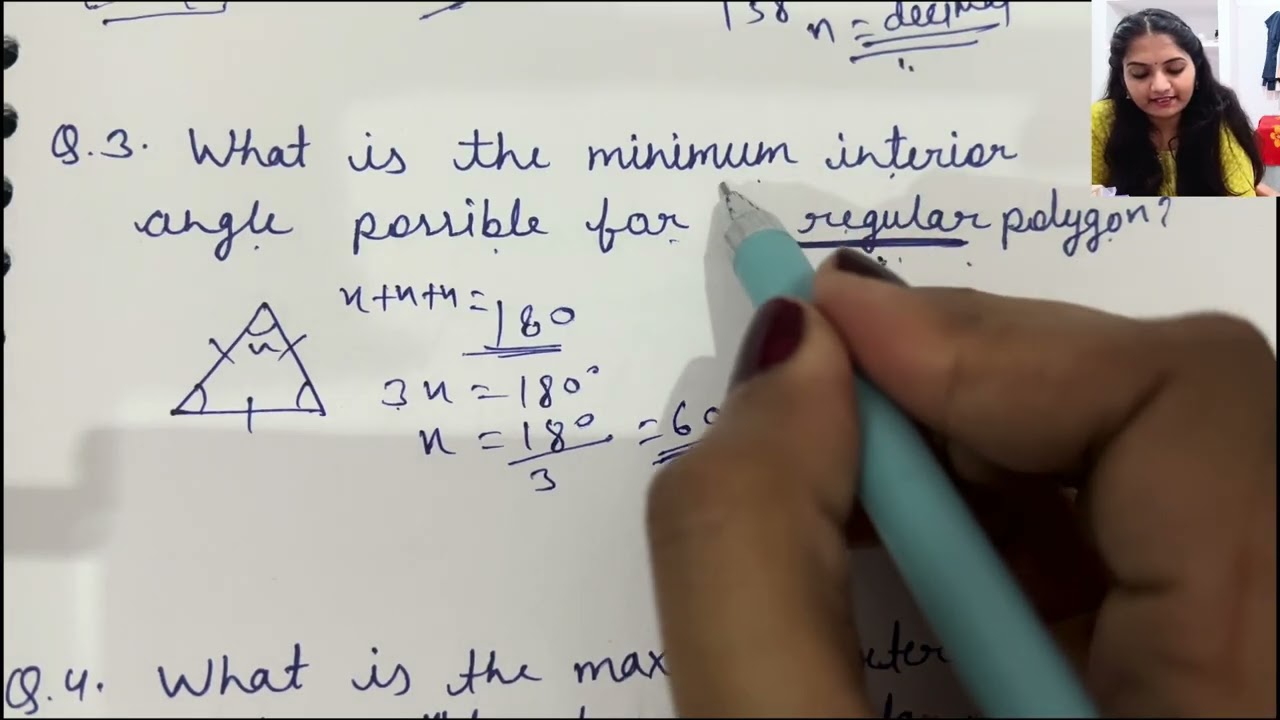 138 n = decimal
Q.3. What is the minimum interior
angle possible for regular polygon?
x+x+x = 180
x
3x = 180°
x = 180 = 60
3
Q.4. What is the max